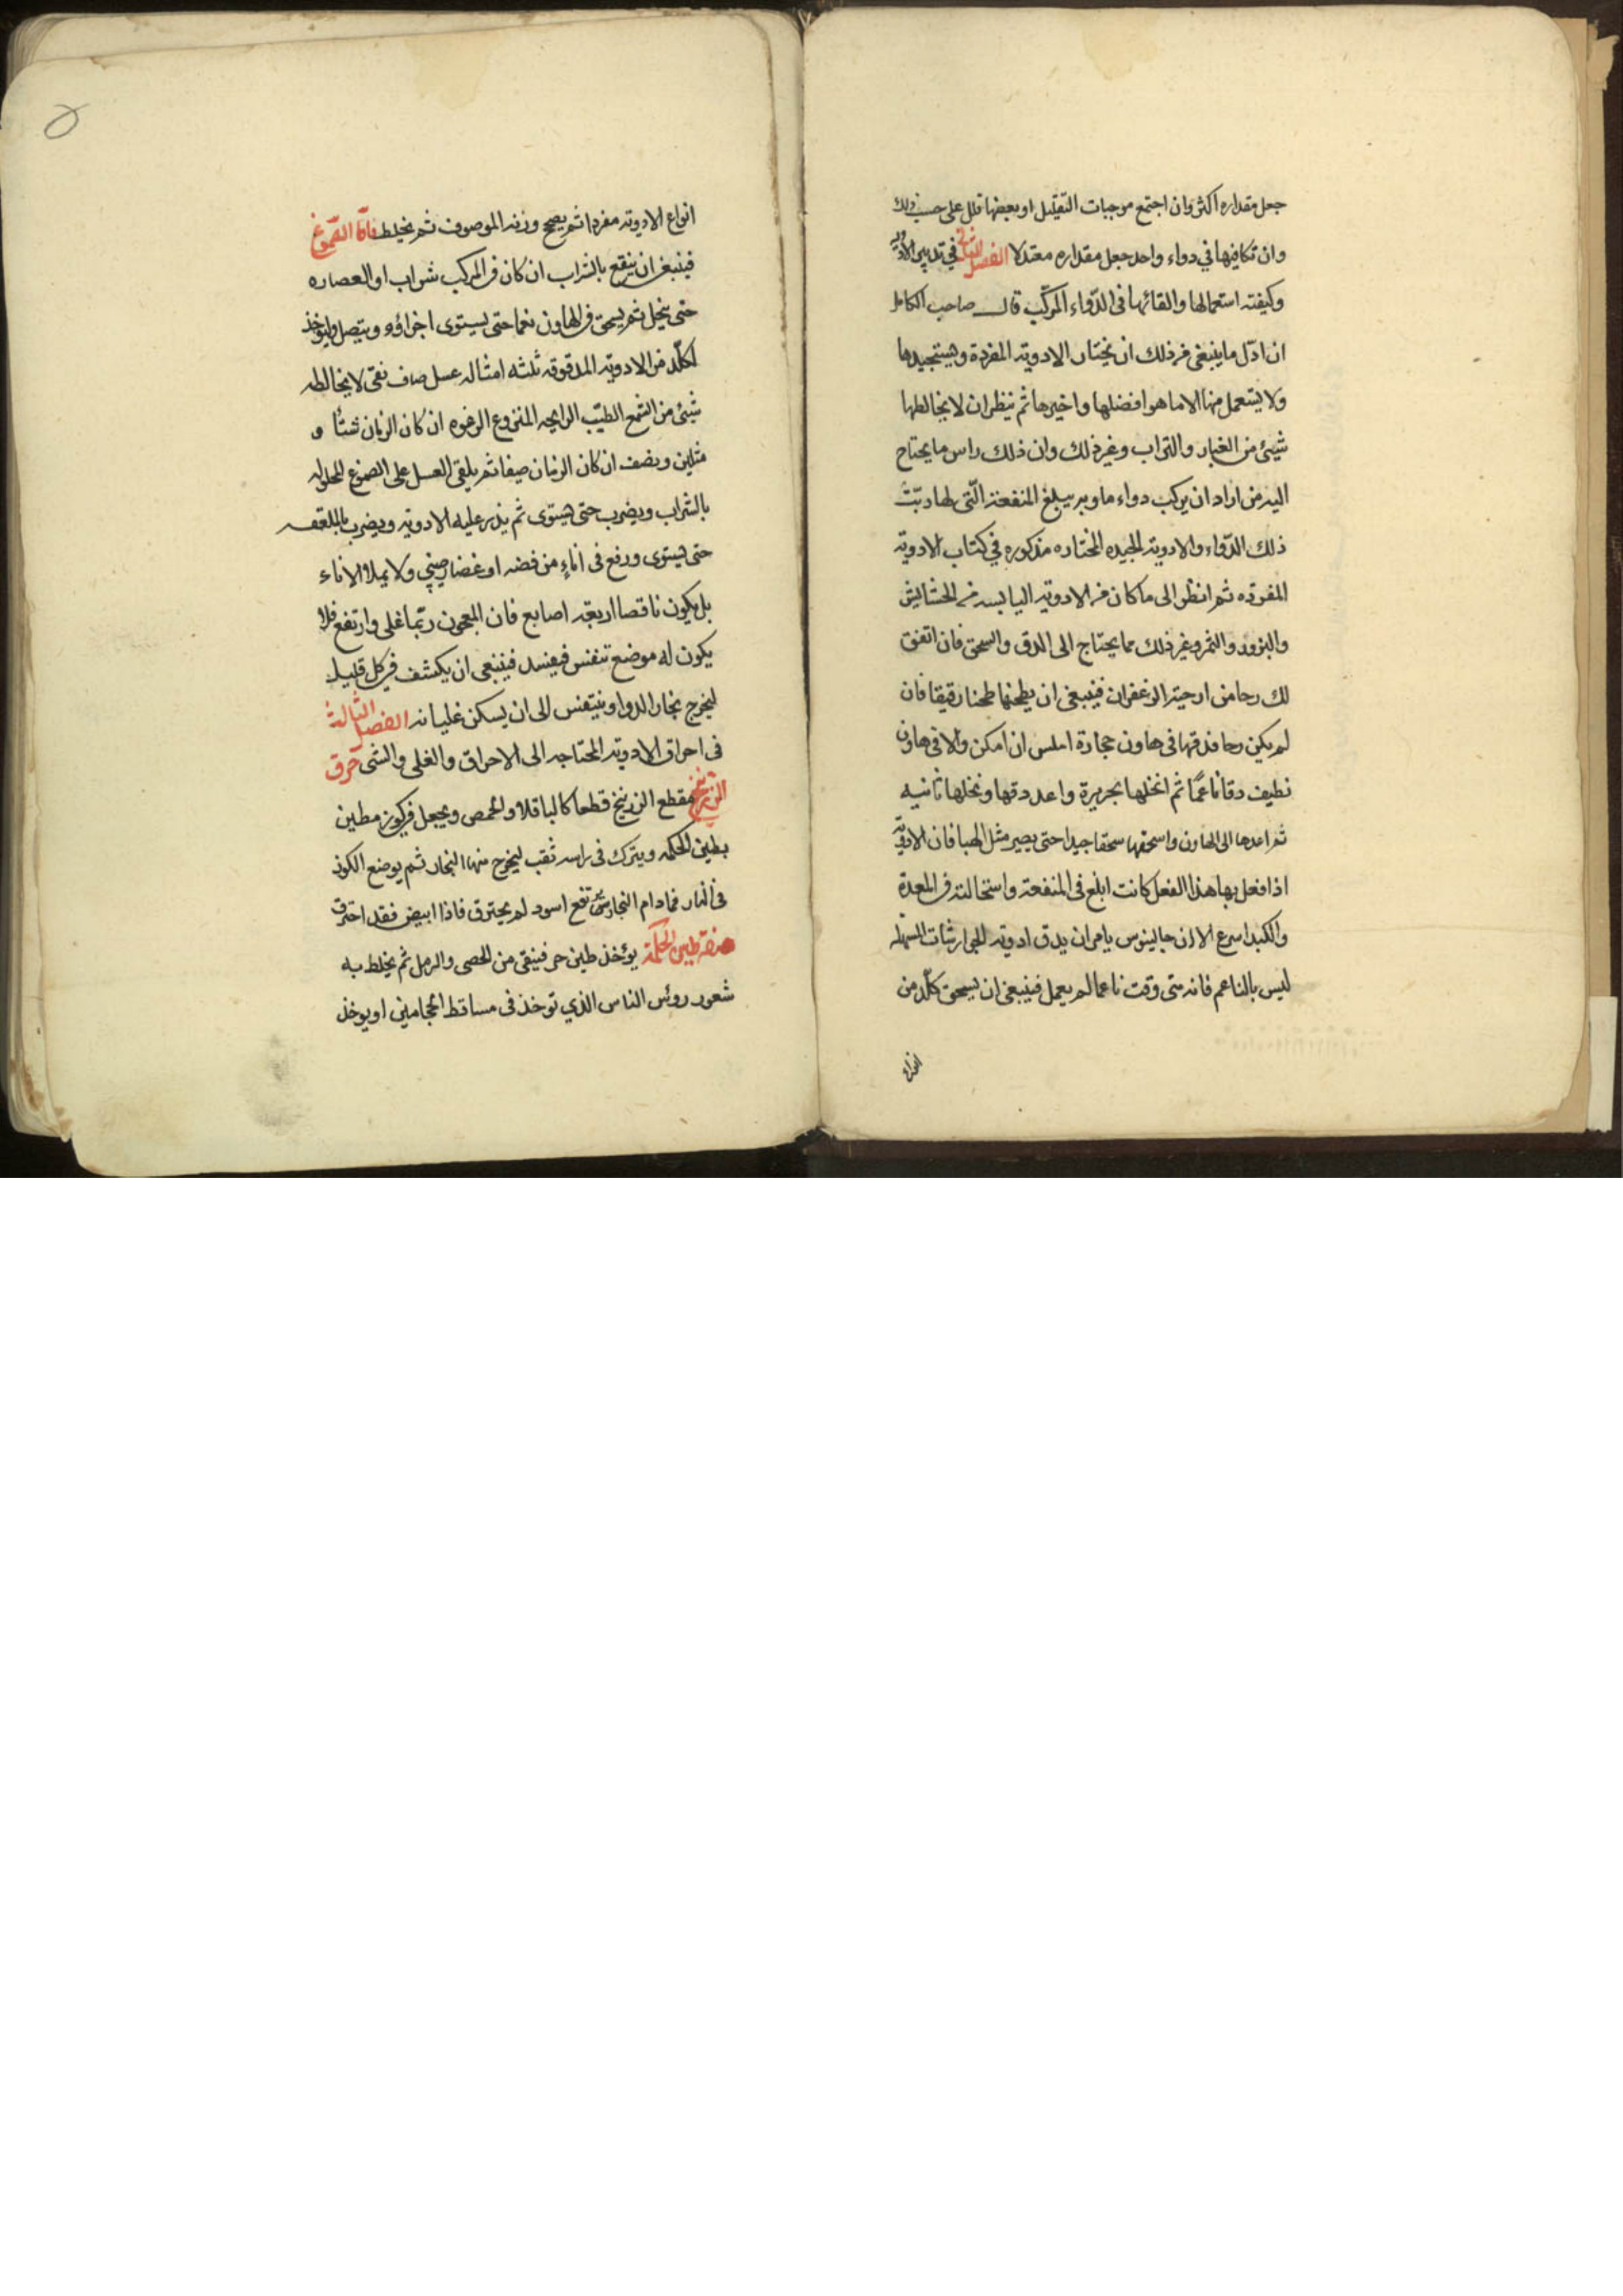 جعل مقداره اكثر وان اجتمع موجبات التقليل او بعضها قلل على حسب ذلك
وان تكافيها في دواء واحد جعل مقداره معتدلا الفصل الثاني في تدبير الادويه
وكيفيته استعمالها والقائها فى الدّواء المركّب قال صاحب الكامل
ان اوّل ما ينبغى من ذلك ان يختار الادويه المفردة ويستجيدها
ولا يستعمل منها الا ما هو افضلها واخيرها ثم ينظر ان لا يخالطها
شيئ من الغبار والتراب وغير ذلك وان ذلك راس ما يحتاج
اليه من اراد ان يركب دواء ما وبه يبلغ المنفعة الّتى لها رتبت
ذلك الدّواء والادويه الجيده المختاره مذكوره في كتاب الادويه
المفرده ثم انظر الى ما كان من الادويه اليابسه من الحشائش
والبزور والثمر وغير ذلك مما يحتاج الى الدق والسحق فان اتفق
لك رحا من ارحية الزعفران فينبغى ان يطحنها طحنا رقيقا فان
لم يكن رحا فدقها فى هاون حجارة املس ان امكن والا فى هاون
نظيف دقا ناعمًا ثم انخلها بحريرة واعد دقها ونخلها ثانيه
ثم اعدها الى الهاون واسحقها سحقا جيدا حتى يصير مثل الهبا فان الادويّه
اذا فعل بها هذا الفعل كانت ابلغ فى المنفعة واستحالته فى المعدة
والكبد اسرع الا ان جالينوس يامر ان يدق ادويه الجوارشنات المسهله
ليس بالناعم فانه متى وقت ناعما لم يعمل فينبغى ان يسحق كلّد من
انواع
انواع الادويه مفردا ثم يصح وزنه الموصوف ثم يخلط فامّا الصّموغ
فينبغى ان ينقع بالشراب ان كان فى المركب شراب او العصاره
حتى تنحل ثم يسحق فى الهاون نعما حتى يستوى اجزاؤه ويتصل وليؤخذ
لكلّد من الادويه المدقوقه ثلثه امثاله عسل صاف نقى لا يخالطه
شيئ من الشمع الطيّب الرايحه المنزوع الرغوه ان كان الزمان شتأ و
مثلين ونصف ان كان الزمان صيفا ثم يلقى العسل على الصموغ المحلوله
بالشراب ويضرب حتى يستوى ثم يذر عليه الادويه ويضرب بالملعقه
حتى يستوى ورفع فى اناءٍ من فضه او غضار صينى ولا يملاء الاناء
بل يكون ناقصا اربعه اصابع فان المعجون ربّما غلى وارتفع فلا
يكون له موضع تنفس فيفسد فينبغى ان يكشف فى كل قليل
ليخرج بخار الدوا ويتنفس الى ان يسكن غليانه الفصل الثالث
فى احراق الادويه المحتاجه الى الاحراق والغلى والشى حرق
الزرنيخ يقطع الزرنيخ قطعا كالباقلا والحمص ويجعل فى كوز مطين
بطين الحكمه ويترك فى راسه ثقب ليخرج منها البخار ثم يوضع الكوز
فى النار فمادام البخار يرتفع اسود لم يحترق فاذا ابيض فقد احترق
صفة طين الحكمة يؤخذ طين حر فينقى من الحصى والرمل ثم يخلط به
شعور روئس الناس الذي توخذ فى مساقط الحجامين او يوخذ